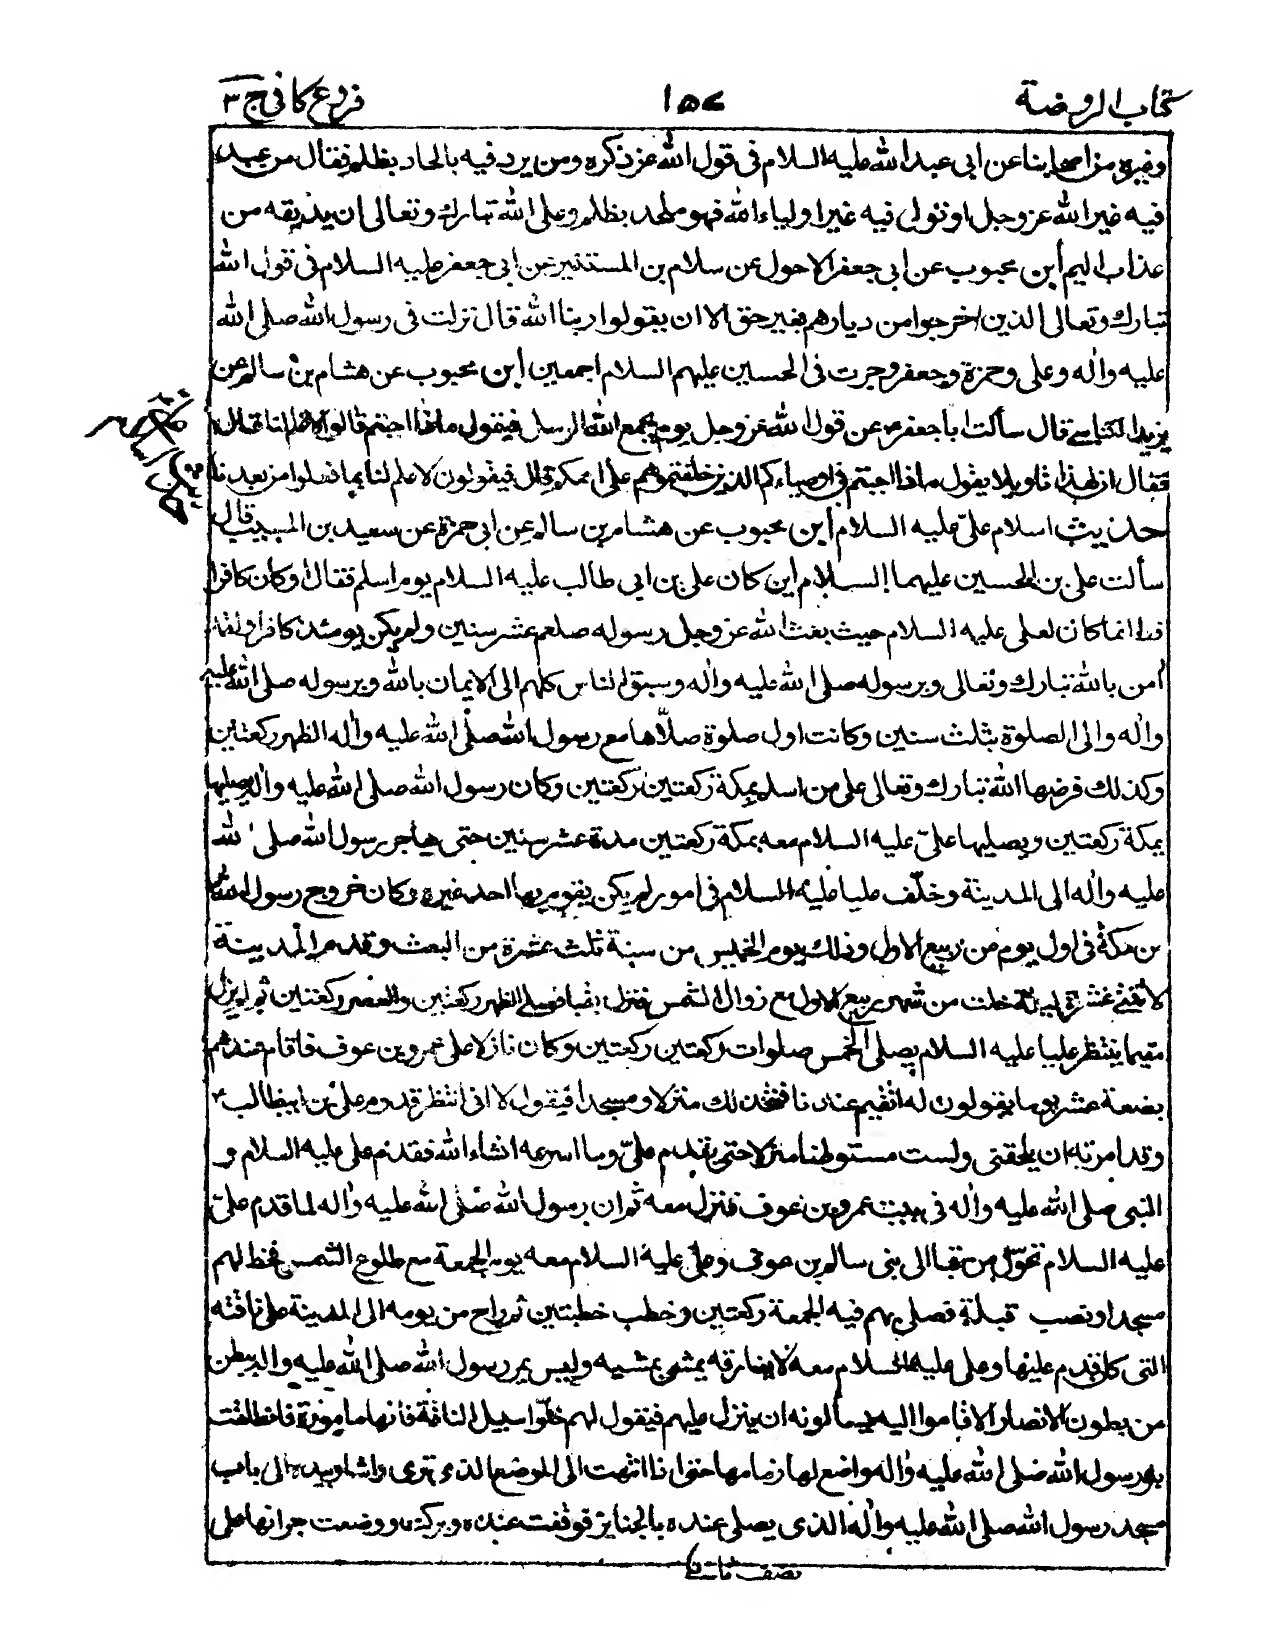 كتاب الروضة ١٥٧ فروع كافي ج ٣
وغيره من اصحابنا عن ابي عبد الله عليه السلام في قول الله عز ذكره ومن يرد فيه بالحاد بظلم فقال من عبد
فيه غير الله عز وجل او تولى فيه غير اولياء الله فهو ملحد بظلم وعلى الله تبارك وتعالى ان يذيقه من
عذاب اليم ابن محبوب عن ابي جعفر الاحول عن سلام بن المستنير عن ابي جعفر عليه السلام في قول الله
تبارك وتعالى الذين اخرجوا من ديارهم بغير حق الا ان يقولوا ربنا الله قال نزلت في رسول الله صلى الله
عليه واله وعلى وحمزة وجعفر وجرت في الحسين عليهم السلام اجمعين ابن محبوب عن هشام بن سالم عن
يزيد الكناسي قال سألت ابا جعفر عن قول الله عز وجل يوم يجمع الله الرسل فيقول ماذا اجبتم قالوا لا علم لنا قال
فقال ان لهذا تاويلا يقول ماذا اجبتم في اوصياءكم الذين خلفتموهم على اممكم قال فيقولون لا علم لنا بما فعلوا من بعدنا
حديث اسلام على عليه السلام ابن محبوب عن هشام بن سالم عن ابي حمزة عن سعيد بن المسيب قال
سألت على بن الحسين عليهما السلام ابن كان على بن ابي طالب عليه السلام يوم اسلم فقال او كان كافرا
قط انما كان لعلى عليه السلام حيث بعث الله عز وجل رسوله صلعم عشر سنين ولم يكن يومئذ كافرا ولقد
امن بالله تبارك وتعالى وبرسوله صلى الله عليه واله وسبق الناس كلهم الى الايمان بالله وبرسوله صلى الله عليه
واله والى الصلوة بثلث سنين وكانت اول صلوة صلاها مع رسول الله صلى الله عليه واله الظهر ركعتين
وكذلك فرضها الله تبارك وتعالى على من اسلم بمكة ركعتين ركعتين وكان رسول الله صلى الله عليه واله يصليها
بمكة ركعتين ويصليها على عليه السلام معه بمكة ركعتين مدة عشر سنين حتى هاجر رسول الله صلى الله
عليه واله الى المدينة وخلف عليا عليه السلام في امور لم يكن يقوم بها احد غيره وكان خروج رسول الله
من مكة في اول يوم من ربيع الاول وذلك يوم الخميس من سنة ثلث عشرة من البعث وقدم المدينة
لاثنتي عشرة ليلة خلت من شهر ربيع الاول مع زوال الشمس فنزل بقبا فصلى الظهر ركعتين والعصر ركعتين ثم لم يزل
مقيما ينتظر عليا عليه السلام يصلى الخمس صلوات ركعتين ركعتين وكان نازلا على عمرو بن عوف فاقام عندهم
بضعة عشر يوما يقولون له اتقيم عندنا فنتخذ لك منزلا ومسجدا فيقول لا اني انتظر قدوم على بن ابيطالب
وقد امرته ان يلحقني ولست مستوطنا منزلا حتى يقدم على وما اسرعه انشاء الله فقدم على عليه السلام و
النبى صلى الله عليه واله في بيت عمرو بن عوف فنزل معه ثم ان رسول الله صلى الله عليه واله لما قدم على
عليه السلام تحول من قبا الى بنى سالم بن عوف وعلى عليه السلام معه يوم الجمعة مع طلوع الشمس فخط لهم
مسجدا ونصب قبلة فصلى بهم فيه الجمعة ركعتين وخطب خطبتين ثم راح من يومه الى المدينة على ناقته
التى كان قدم عليها وعلى عليه السلام معه لا يفارقه يمشى بمشيه وليس يمر رسول الله صلى الله عليه واله ببطن
من بطون الانصار الا قاموا اليه يسألونه ان ينزل عليهم فيقول لهم خلوا سبيل الناقة فانها مامورة فانطلقت
به رسول الله صلى الله عليه واله واضع لها زمامها حتى اذا انتهت الى الموضع الذى ترى واشار بيده الى باب
مسجد رسول الله صلى الله عليه واله الذى يصلى عنده بالجنايز فوقفت عنده وبركت ووضعت جرانها على